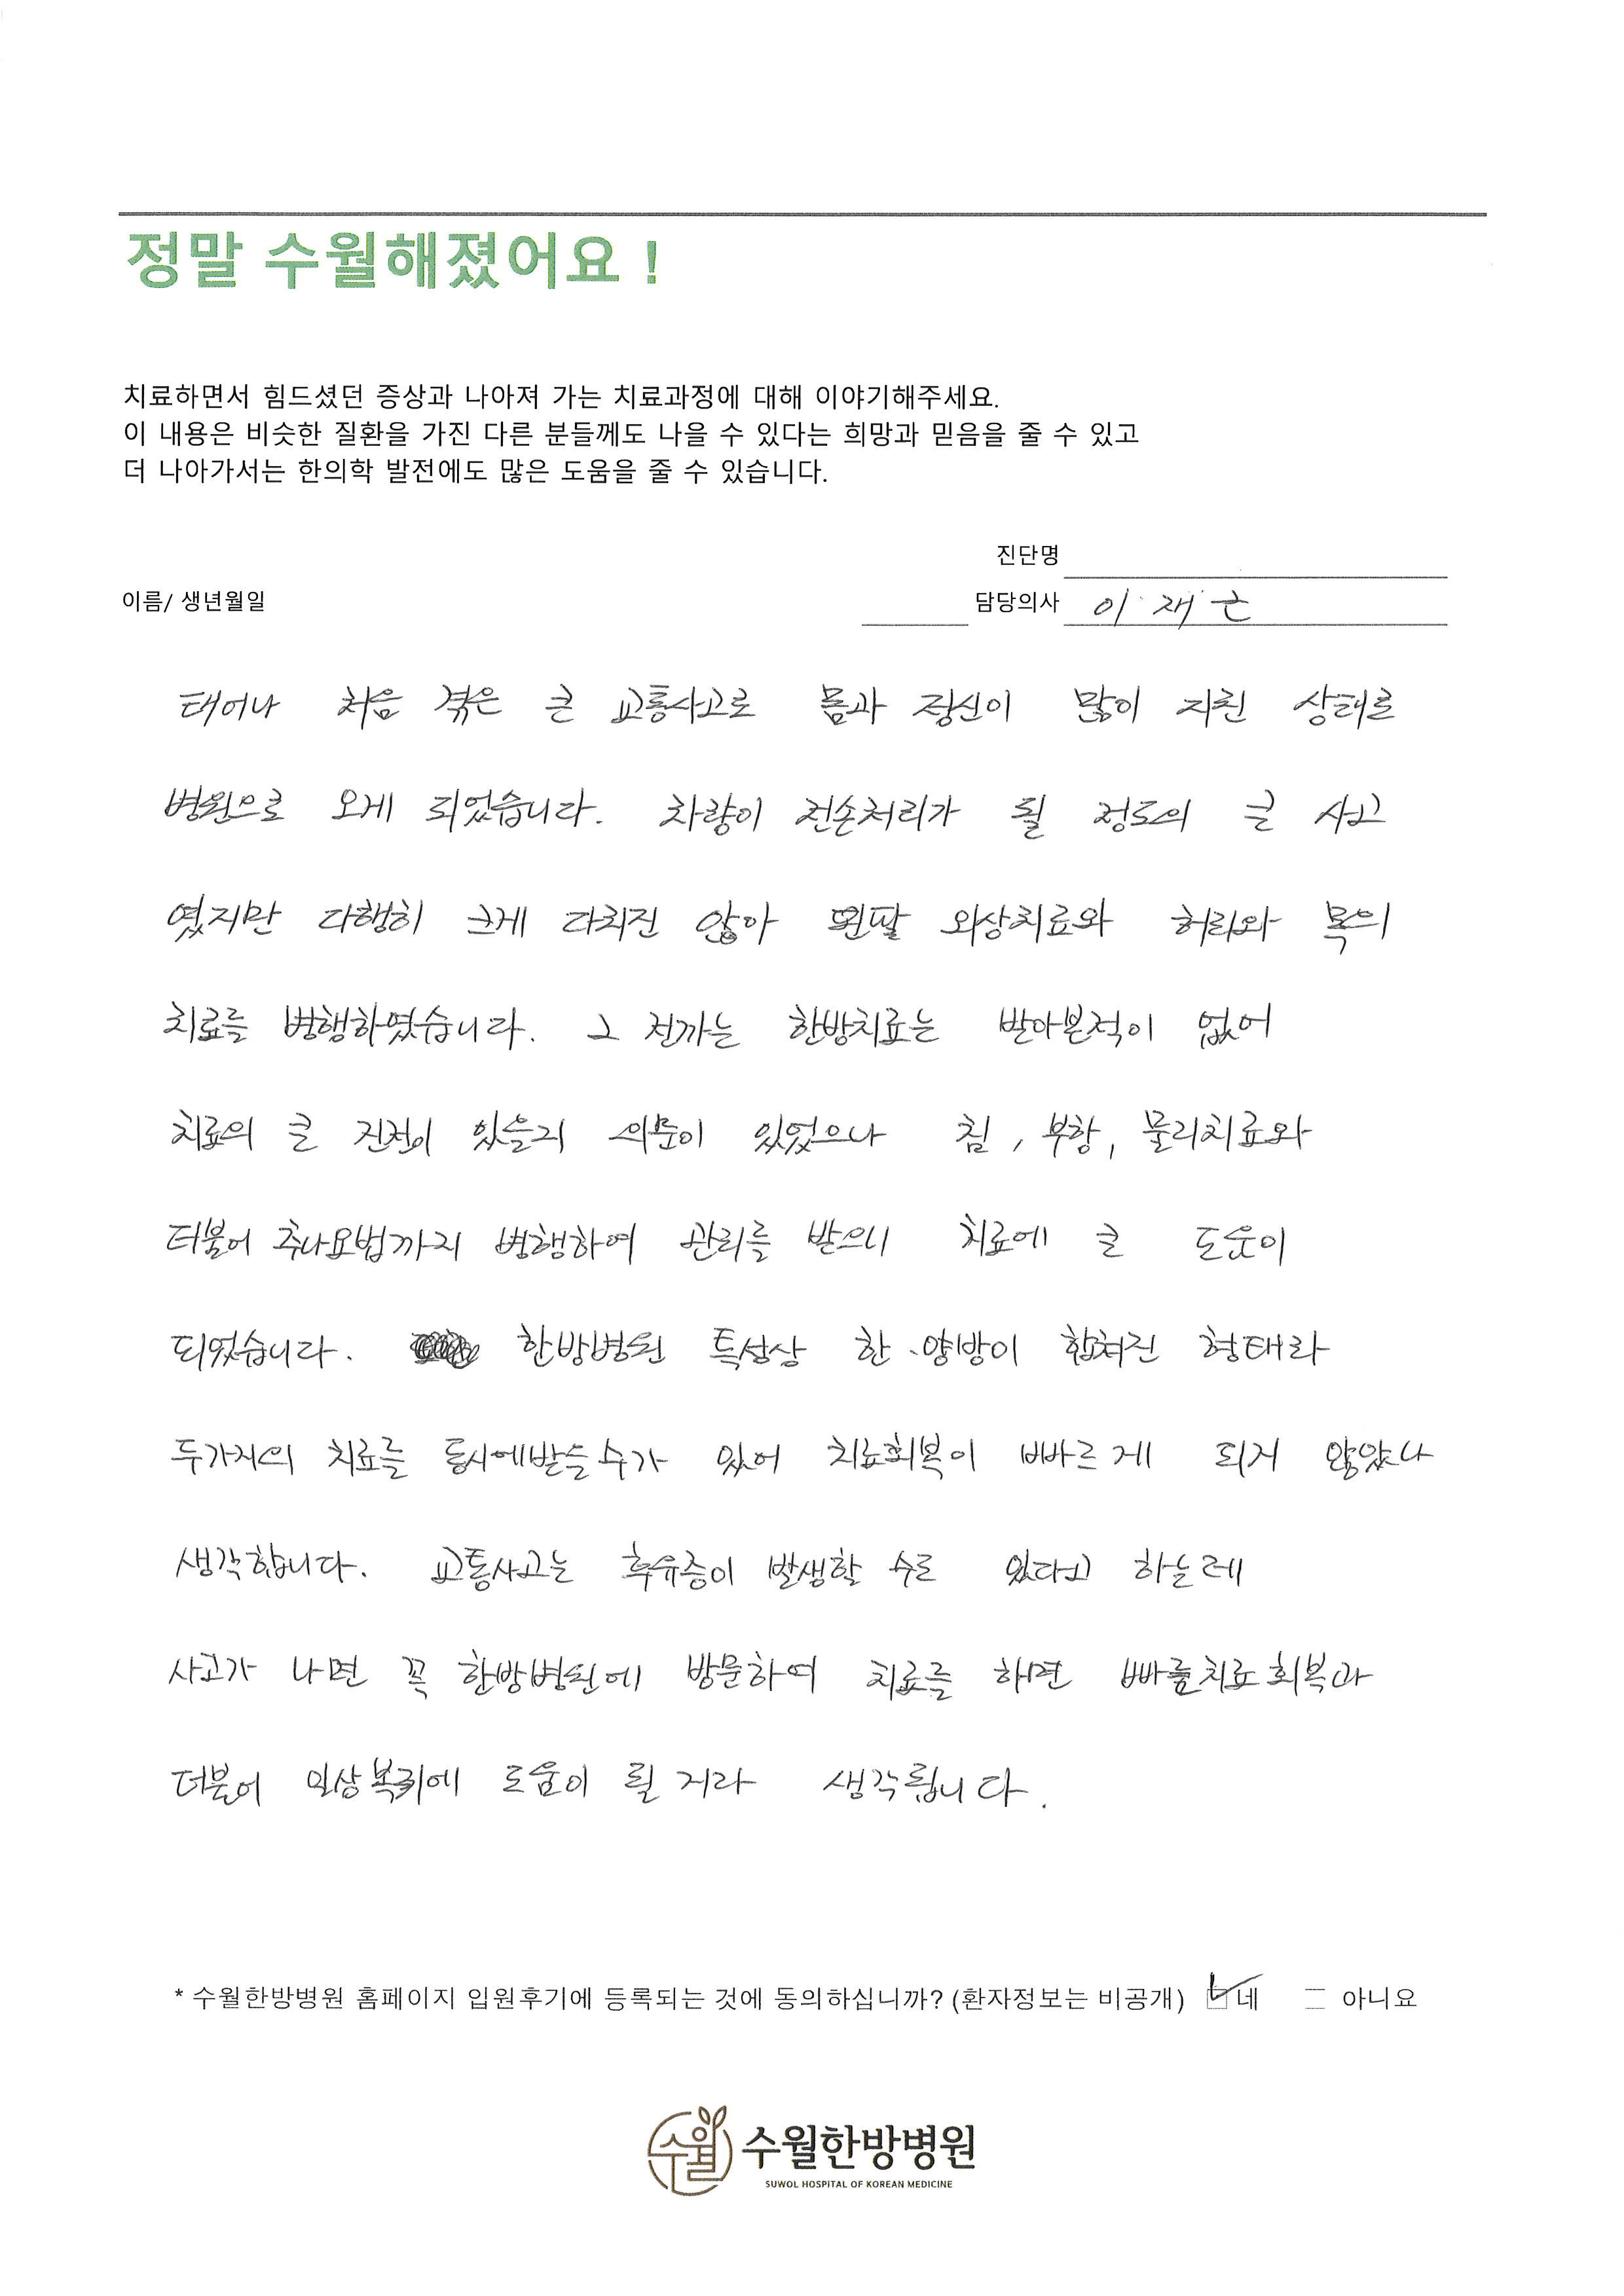 정말 수월해졌어요 !
치료하면서 힘드셨던 증상과 나아져 가는 치료과정에 대해 이야기해주세요.
이 내용은 비슷한 질환을 가진 다른 분들께도 나을 수 있다는 희망과 믿음을 줄 수 있고
더 나아가서는 한의학 발전에도 많은 도움을 줄 수 있습니다.
진단명
이름/ 생년월일 담당의사 이재근
태어나 처음 겪은 큰 교통사고로 몸과 정신이 많이 지친 상태로
병원으로 오게 되었습니다. 차량이 전손처리가 될 정도의 큰 사고
였지만 다행히 크게 다치진 않아 왼팔 외상치료와 허리와 목의
치료를 병행하였습니다. 그 전까는 한방치료는 받아본적이 없어
치료의 큰 진전이 있을지 의문이 있었으나 침, 부항, 물리치료와
더불어 추나요법까지 병행하여 관리를 받으니 치료에 큰 도움이
되었습니다. 한방병원 특성상 한·양방이 합쳐진 형태라
두가지의 치료를 동시에받을수가 있어 치료회복이 빠르게 되지 않았나
생각합니다. 교통사고는 후유증이 발생할 수도 있다고 하는데
사고가 나면 꼭 한방병원에 방문하여 치료를 하면 빠를치료회복과
더불어 일상복귀에 도움이 될 거라 생각됩니다.
* 수월한방병원 홈페이지 입원후기에 등록되는 것에 동의하십니까? (환자정보는 비공개) 네 아니요
수월 수월한방병원
SUWOL HOSPITAL OF KOREAN MEDICINE